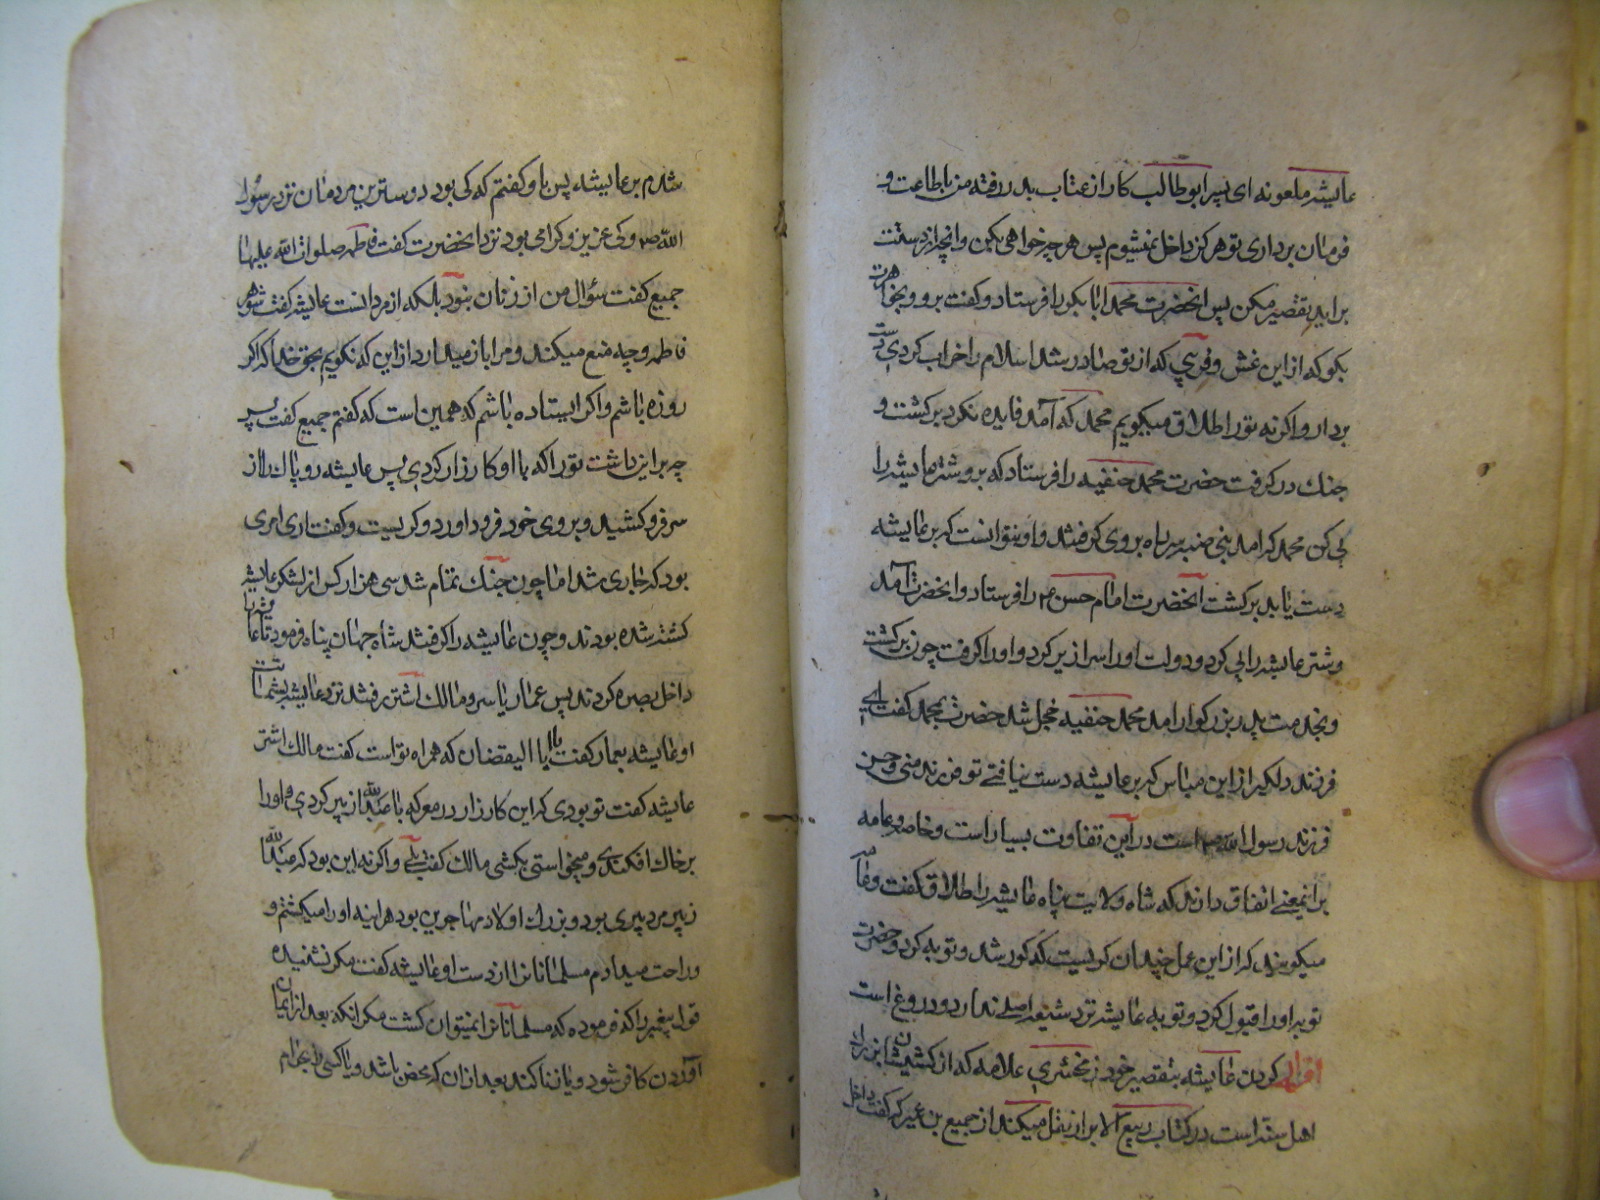 عایشه ملعونه ای پسر ابوطالب کار از عتاب بدر رفته من باطاعت و
فرمان برداری تو هرکز داخل نمیشوم پس هر چه خواهی بکن وانچه از دستت
براید تقصیر مکن پس انحضرت محمد ابابکر را فرستاد و کفت برو و بخواهرت
بکو که از این غش و که از تو صادر شد اسلام را خراب کردی دست
بردار و اکرنه تورا طلاق میکویم محمد که آمد فایده نکرد برکشت و
جنك در کرفت حضرت محمد حنفیه را فرستاد که برو شتر عایشه را
پی کن محمد که امد بنی ضبه سر راه بر وی کرفتند و او نتوانست که بر عایشه
دست یابد برکشت انحضرت امام حسن را فرستاد و انحضرت آمد
و شتر عایشه را پی کرد و دولت او را سرازیر کرد و او را کرفت چون برکشت
و بخدمت پدر بزرکوار امد محمد حنفیه خجل شد حضرت بمحمد کفت ای
فرزند دلکیر از این مباش که بر عایشه دست نیافتی تو فرزند منی و حسن
فرزند رسول الله است در این تفاوت بسیار است و خاصه و عامه
برایمعنی اتفاق دارند که شاه ولایت پناه عایشه را طلاق کفت و
میکویند که از این عمل چندان کریست که کور شد و توبه کرد و حضرت
توبه او را قبول کرد و توبه عایشه نزد شیعه اصلی ندارد و دروغ است
اقرار کردن عایشه بتقصیر خود زمخشری علامه که از کشیشان بزرك
اهل سنه است در کتاب ربیع الابرار نقل میکند از جمیع بن عمیر که کفت داخل
شدم بر عایشه پس باو کفتم که کی بود دوسترین مردمان نزد رسول
الله و کی عزیز و کرامی بود نزد انحضرت کفت فاطمه صلوات الله علیها
جمیع کفت سؤال من از زنان نبود بلکه از مردانست عایشه کفت شوهر
فاطمه و چه منع میکند و مرا باز میدارد از این که نکویم بحق خدا که اکر
روزه باشم و اکر ایستاده باشم که همین است که کفتم جمیع کفت پس
چه بر این داشت تورا که با او کارزار کردی پس عایشه روپاك را از
سر فرو کشید و بروی خود فرود اورد و کریست و کفت اری امری
بود که جاری شد اما چون جنك تمام شد سی هزار کس از لشکر عایشه
کشته شده بودند و چون عایشه را کرفتند شاه جهان پناه فرمود تا
داخل بصره کردند پس عمار یاسر و مالك اشتر رفتند نزد عایشه بشماتت
او عایشه بعمار کفت یا ابا الیقضان که همراه تو است کفت مالك اشتر
عایشه کفت تو بودی که این کارزار در معرکه با عبدالله زبیر کردی و او را
بر خاك افکندی و میخواستی بکشی مالك کفت بلی و اکر نه این بود که عبدالله
زبیر مرد پیری بود و بزرك اولاد مهاجرین بود هراینه او را میکشتم و
و راحت میدادم مسلمانانرا از دست او عایشه کفت مکر نشنیده
قول پیغمبر را که فرموده که مسلمانانرا نمیتوان کشت مکر انکه بعد از ایمان
آوردن کافر شود و یا زنا کند بعد از ان که محصن باشد و یا کسی را بحرام